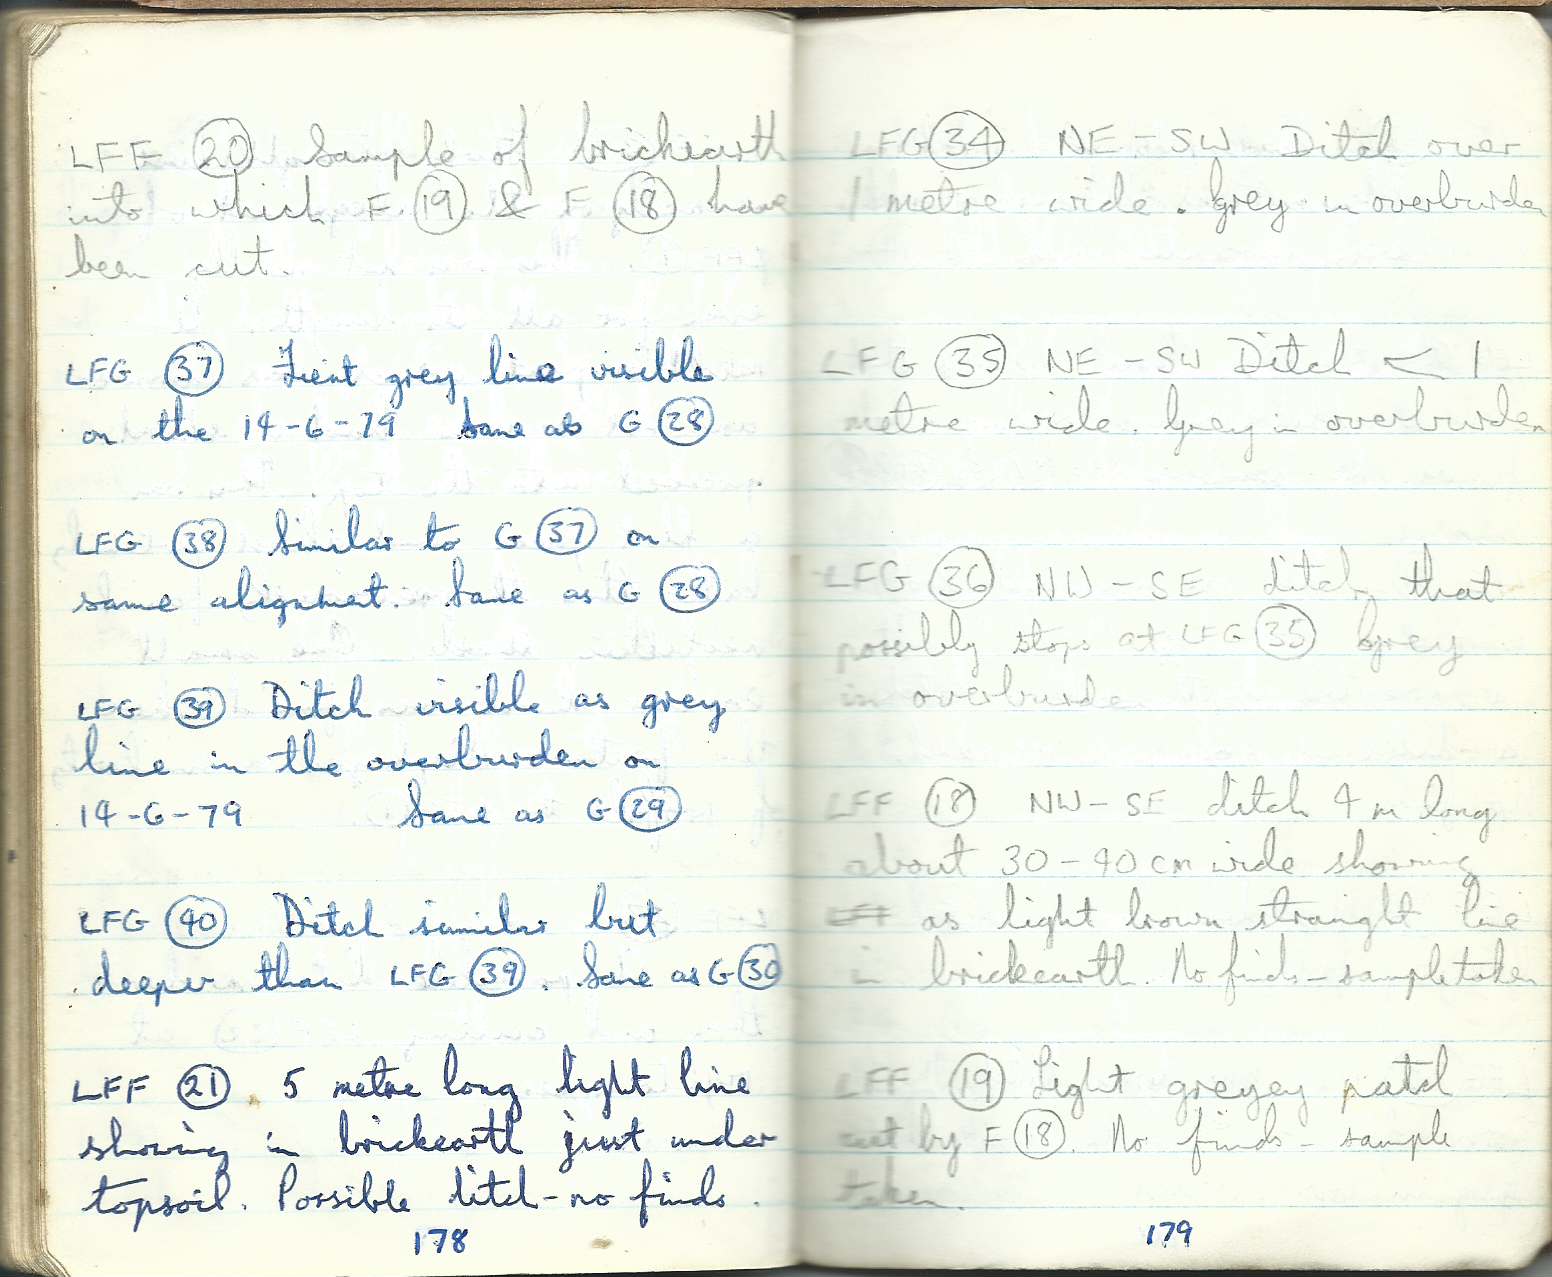 LFF 20 Sample of brickearth
into which F 19 & F 18 have
been cut.
LFG 37 Feint grey line visible
on the 14-6-79 Same as G 28
LFG 38 Similar to G 37 on
same alignment. Same as G 28
LFG 39 Ditch visible as grey
line in the overburden on
14-6-79 Same as G 29
LFG 40 Ditch similar but
deeper than LFG 39. Same as G 30
LFF 21 5 metre long light line
showing in brickearth just under
topsoil. Possible ditch - no finds.
178
LFG 34 NE - SW Ditch over
1 metre wide. Grey in overburden
LFG 35 NE - SW Ditch < 1
metre wide. Grey in overburden
LFG 36 NW - SE ditch that
possibly stops at LFG 35 grey
in overburden
LFF 18 NW - SE ditch 4 m long
about 30 - 40 cm wide showing
LFF as light brown straight line
in brickearth. No finds - sample taken
LFF 19 Light greyey patch
cut by F 18. No finds - sample
taken.
179